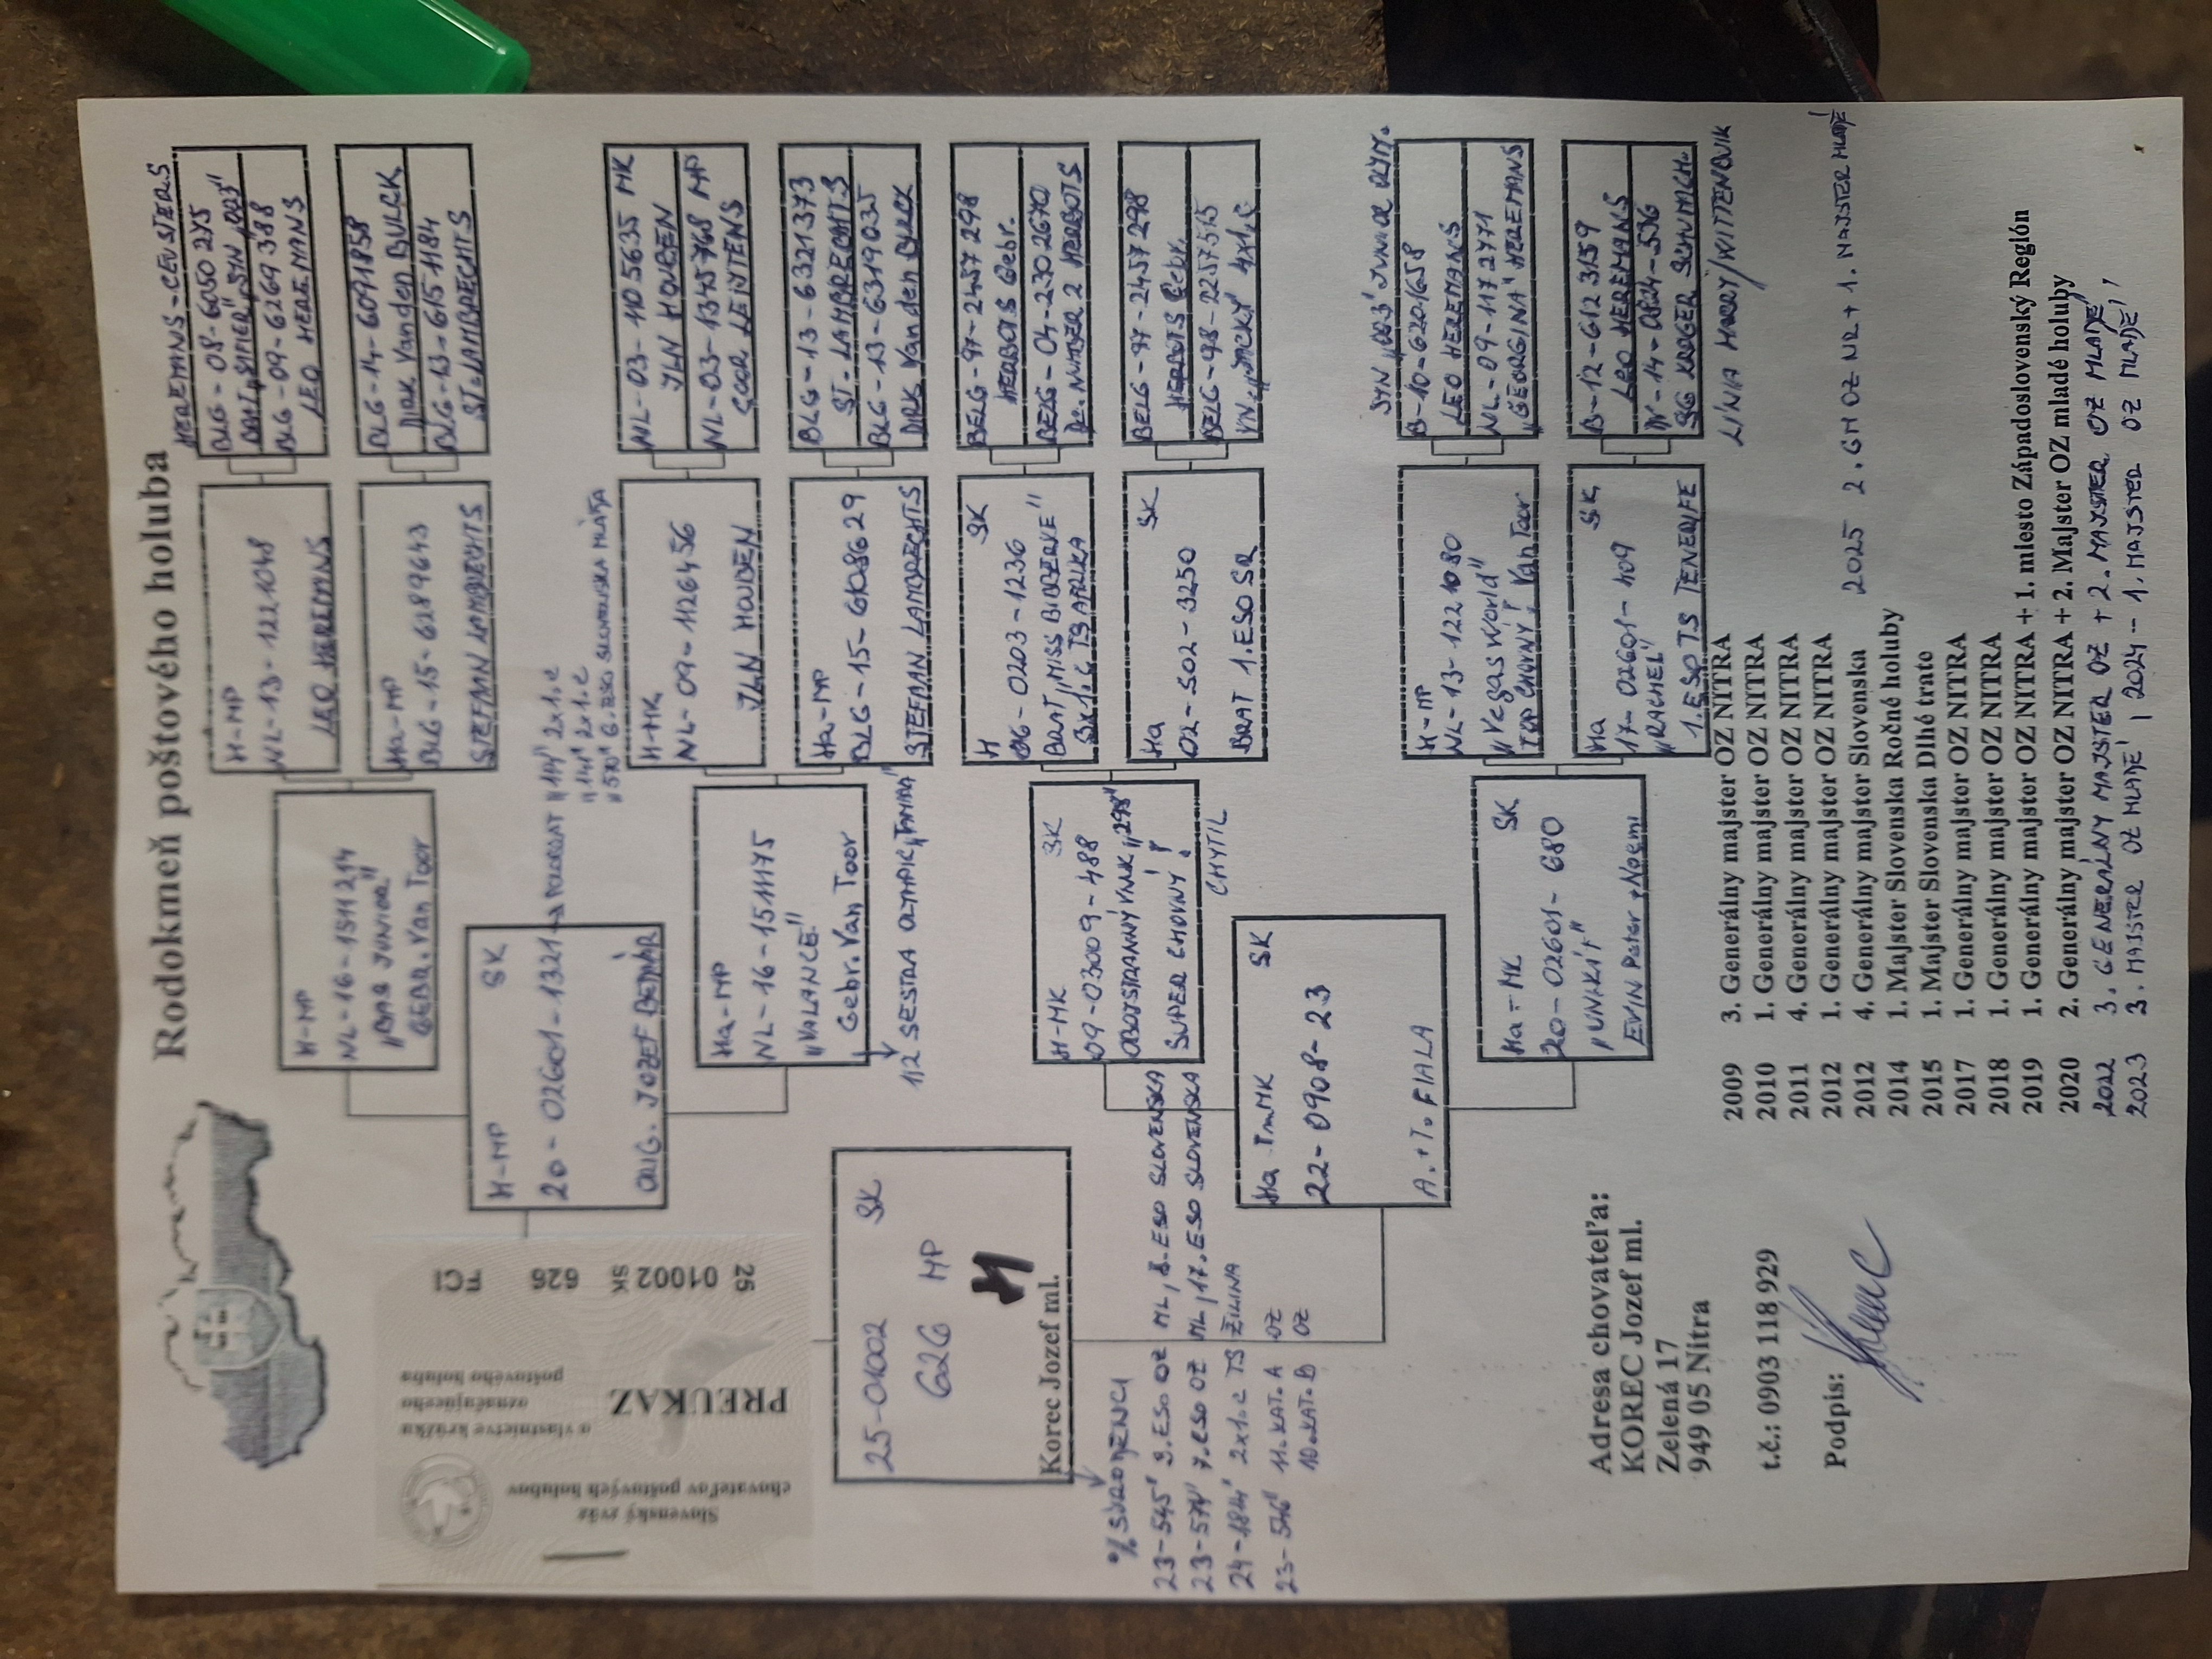 Rodokmeň poštového holuba
Slovenský zväz
chovateľov poštových holubov
PREUKAZ
o vlastníctve krúžku
označujúceho
poštového holuba
25 01002 SK 626
25-01002 SK
626 MP
Korec Jozef ml.
H-MP SK
20-02601-1321
ORIG. JOZEF BEDNÁR
H-MP
NL-16-1511214
"BAR JUNIOR"
GEBR. Van Toor
Ha-MP
NL-16-1511175
"VALANCE"
Gebr. Van Toor
1/2 SESTRA OLYMPIC "TAMARA"
H-MP
NL-13-1221048
LEO HEREMNS
Ha-MP
BLG-15-6289643
STEFAAN LAMBRECHTS
"114" 2x1.c
"141" 2x1.c
"570" 6. ESO SLOVENSKA MLÁĎA
H-MK
NL-09-1126456
JAN HOUBEN
Ha-MP
BLG-15-6108629
STEFAAN LAMBRECHTS
HEREMANS-CEUSTERS
BLG-08-6050275
BLG-09-6269388
LEO HEREMANS
BLG-14-6091858
DIRK Van den BULCK
BLG-13-6151184
ST. LAMBRECHTS
NL-03-1105635 MK
JAN HOUBEN
NL-03-1345768 MP
GOOR LEIJTENS
BLG-13-6321373
ST. LAMBRECHTS
BLG-13-6319035
DIRK Van den BULCK
H-MK SK
09-0309-488
OBOJSTRANNÝ VNUK "298"
SUPER CHOVNÝ!
CHYTIL
H SK
06-0203-1236
BRAT "MISS BIBBERKE"
3x1.c TS AFRIKA
Ha SK
02-502-3250
BRAT 1. ESO SR
BELG-97-2457298
HERBOTS Gebr.
BELG-04-2302670
NUMBER 2 HERBOTS
BELG-97-2457298
HERBOTS Gebr.
BELG-98-2257515
VN. "MCKY" 4x1.c
Ha TmMK SK
22-0908-23
A.+T. FIALA
Ha-MK SK
20-02601-680
"UNIKÁT"
EVIN Peter + Noemi
H-MP
NL-13-1221080
"Vegas World"
TOP CHOVNÝ! Van Toor
Ha SK
17-02601-109
"RACHEL"
1. ESO TS TENERIFE
SYN "003" JUNIOR OLYM.
B-10-6201658
LEO HEREMANS
NL-09-1172771
"GEORGINA" HEREMANS
B-12-6123159
LEO HEREMANS
LÍNIA HARRY/WITTENBUIK
% SÚRODENCI
23-545" 3. ESO OZ ML, 8. ESO SLOVENSKA
23-574" 7. ESO OZ ML, 17. ESO SLOVENSKA
24-1844" 2x1.c TS ŽILINA
23-546" 11. KAT. A OZ
10. KAT. B OZ
Adresa chovateľa:
KOREC Jozef ml.
Zelená 17
949 05 Nitra
t.č.: 0903 118 929
Podpis:
2009 3. Generálny majster OZ NITRA
2010 1. Generálny majster OZ NITRA
2011 4. Generálny majster OZ NITRA
2012 1. Generálny majster OZ NITRA
2012 4. Generálny majster Slovenska
2014 1. Majster Slovenska Ročné holuby
2015 1. Majster Slovenska Dlhé trate
2017 1. Generálny majster OZ NITRA
2018 1. Generálny majster OZ NITRA
2019 1. Generálny majster OZ NITRA + 1. miesto Západoslovenský Región
2020 2. Generálny majster OZ NITRA + 2. Majster OZ mladé holuby
2022 3. GENERÁLNY MAJSTER OZ + 2. MAJSTER OZ MLADÉ
2023 3. MAJSTER OZ MLADÉ, 2024 - 1. MAJSTER OZ MLADÉ,
2025 2. GM OZ NR + 1. MAJSTER MLADÉ